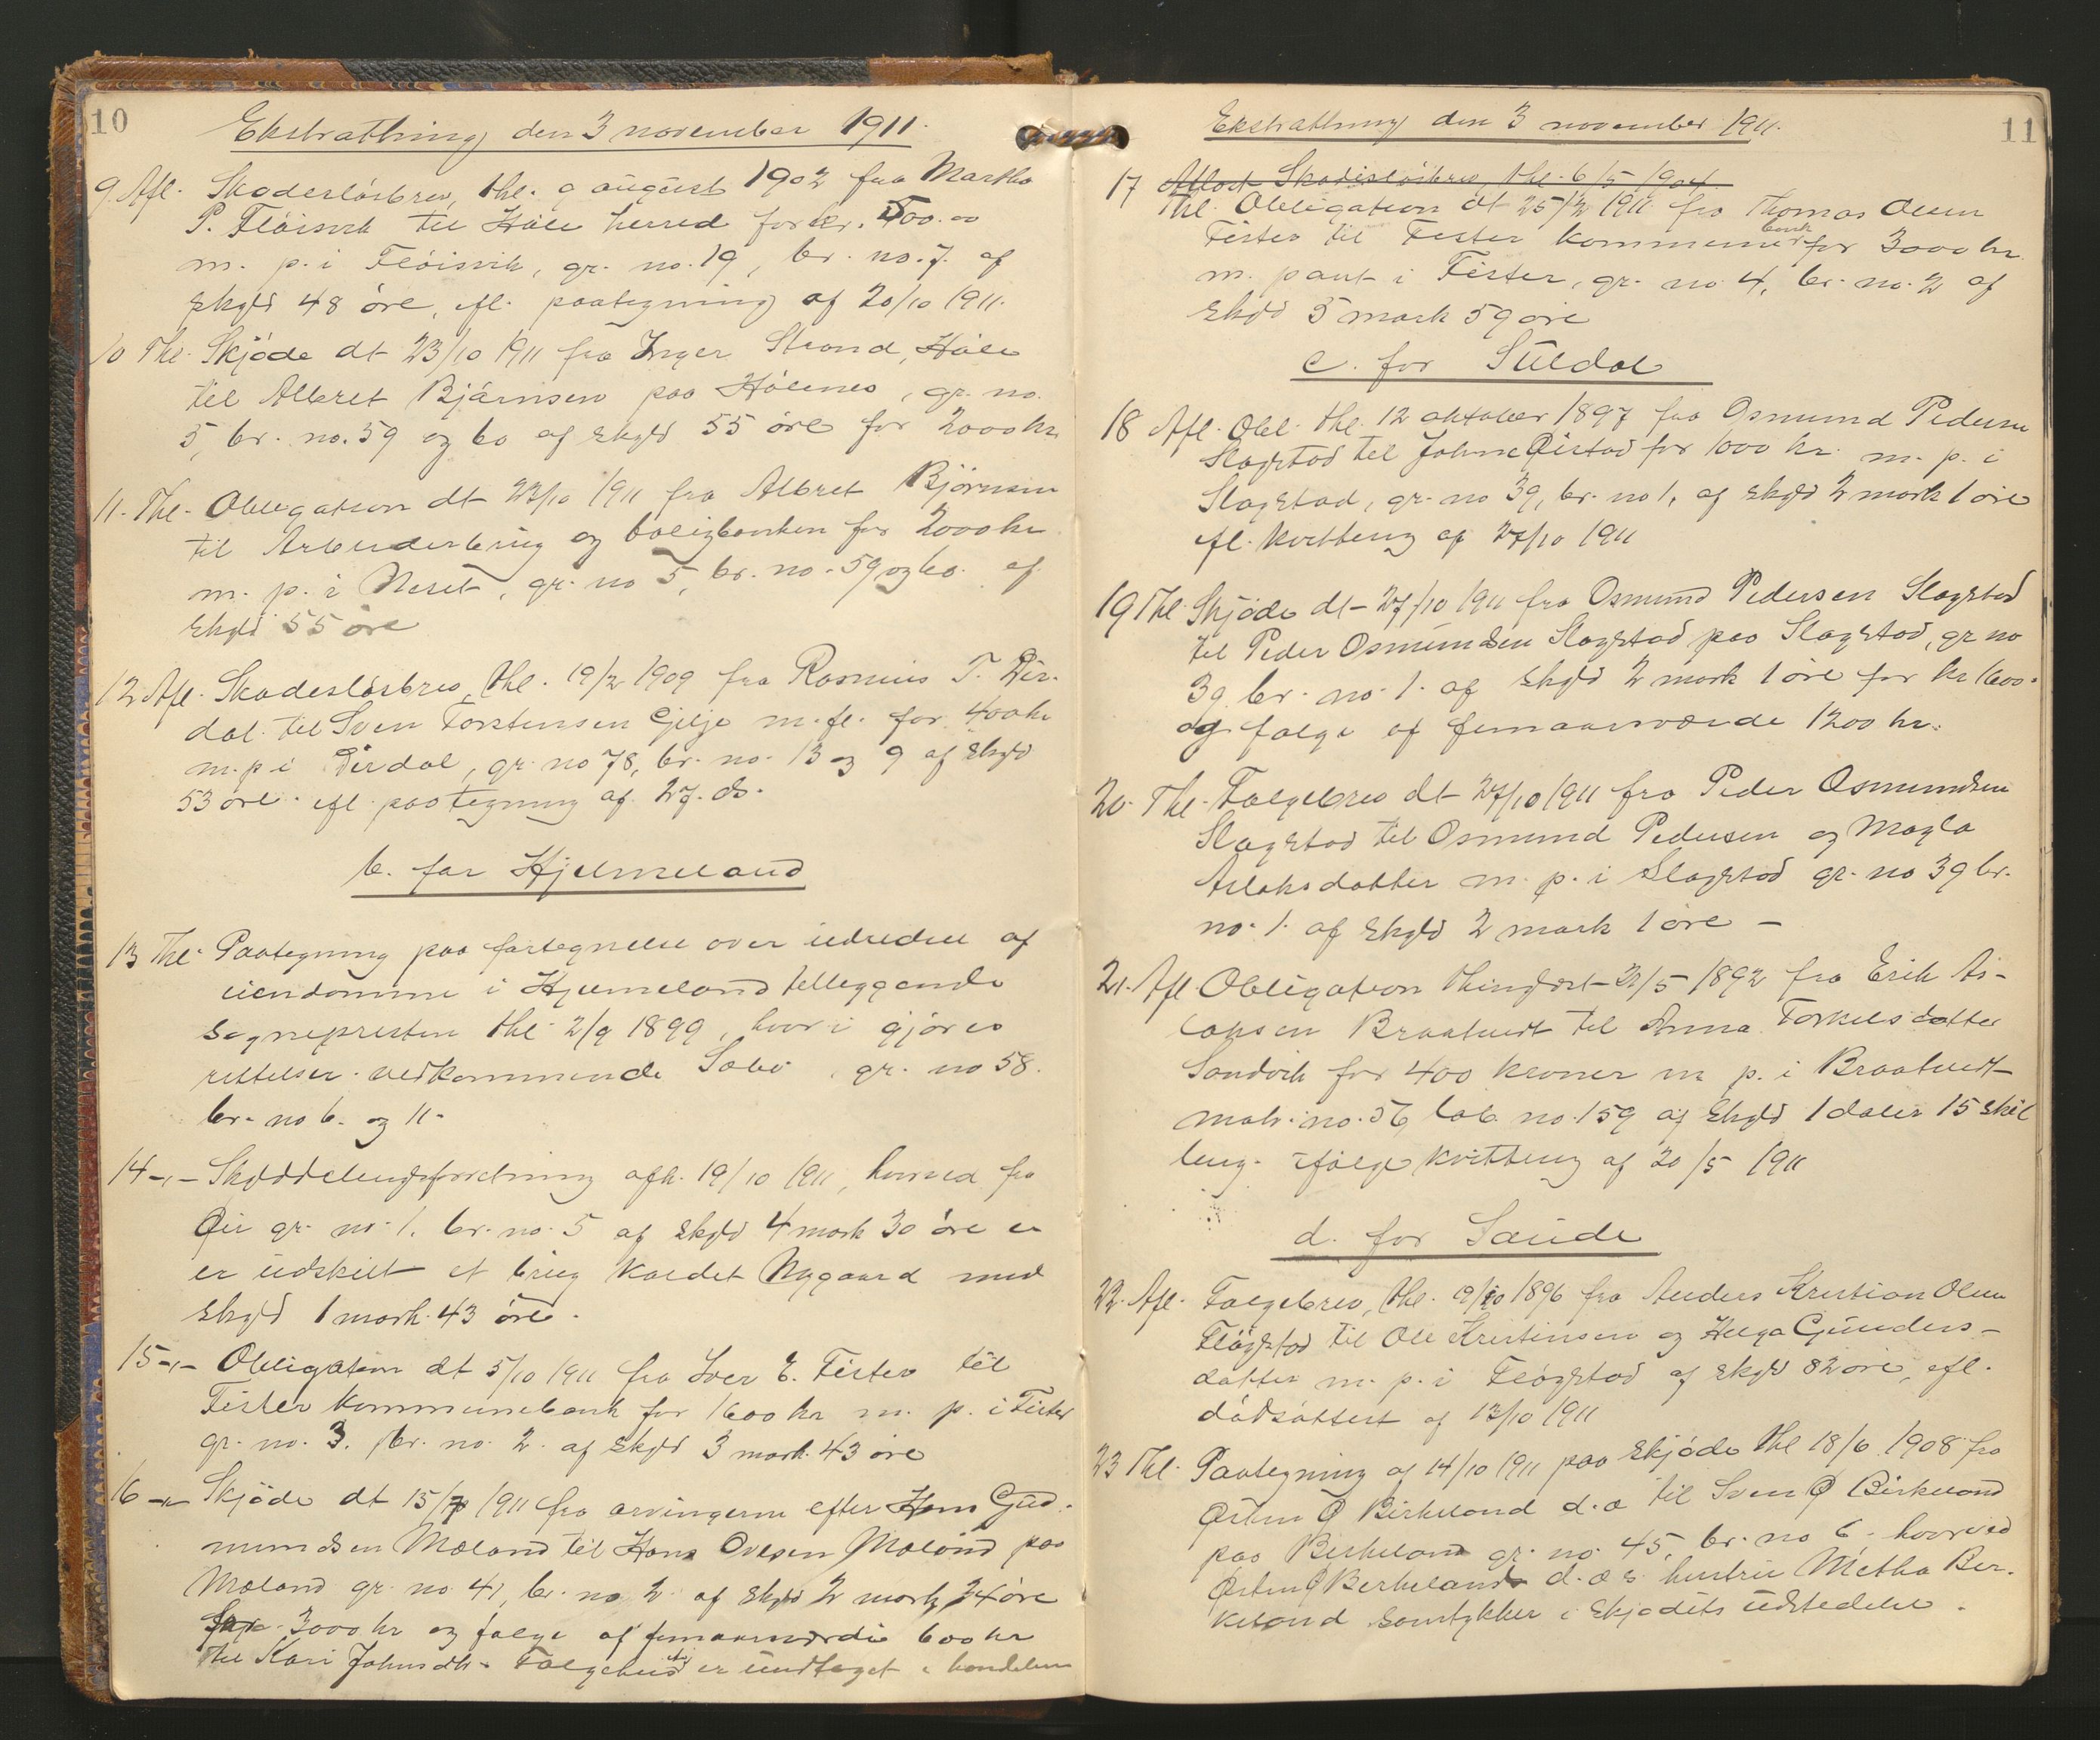 10
Ekstratthing den 3 november 1911.
9. Afl. Skadesløsbrev, thl. 9 august 1902 fra Martha
P. Fløisvik til Høle herred for kr. 500.00
m. p. i Fløisvik, gr. no. 19, br. no. 7. af
skyld 48 øre, efl. paategning af 20/10 1911.
10 Thl. Skjøde dt 23/10 1911 fra Inger Strand, Høle
til Albret Bjørnsen paa Hølenes, gr. no.
5, br. no. 59 og 60 af skyld 55 øre for 2000 kr.
11. Thl. Obligation dt 23/10 1911 fra Albret Bjørnsen
til Arbeiderbrug og boligbanken for 2000 kr
m. p. i Neset, gr. no 5, br. no. 59 og 60. af
skyld 55 øre
12. Afl. Skadesløsbrev, thl. 19/2 1909 fra Rasmus T. Dir-
dal til Sven Torstensen Gilje m. fl. for 400 kr
m. p. i Dirdal, gr. no 78, br. no. 13 og 9 af skyld
53 øre. efl. paategning af 27. ds.
b. for Hjelmeland
13 Thl. Paategning paa fortegnelse over udredsel af
eiendomme i Hjelmeland tilleggende
sognepresten thl. 2/9 1899, hvori gjøres
rettelser vedkommende Sæbø, gr. no 58.
br. no 6. og 11.
14 -"- Skylddelingsforretning afh. 19/10 1911, hvorved fra
Øie gr. no. 1. br. no. 5 af skyld 4 mark 30 øre er
er udskilt et brug kaldet Nygaard med
skyld 1 mark 43 øre.
15 -"- Obligation dt 5/10 1911 fra Iver E. Fister til
Fister kommunebank for 1600 kr m. p. i Fister
gr. no. 3. br. no. 2. af skyld 3 mark 43 øre
16 -"- Skjøde dt 15/7 1911 fra arvingerne efter Hans Gud-
mundsen Mæland til Hans Ovesen Mæland paa
Mæland gr. no 41, br. no 2 af skyld 2 mark 24 øre
for 3000 kr og følge af femaarsværdi 600 kr
til Kari Johnsdtr. Følgehus er undtaget i handelen
11
Ekstratthing den 3 november 1911.
17 Aflæst Skadesløsbrev, thl. 6/5 1904.
Thl. Obligation dt 25/2 1911 fra Thomas Olsen
Fister til Fister kommunebank for 3000 kr.
m. pant i Fister, gr. no 4, br. no. 2 af
skyld 5 mark 59 øre
c. for Suldal
18 Afl. Obl. thl. 12 oktober 1897 fra Osmund Pedersen
Slagstad til Johne Øistad for 1000 kr. m. p. i
Slagstad, gr. no 39, br. no 1, af skyld 2 mark 1 øre
efl. kvittering af 27/10 1911
19 Thl. Skjøde dt 27/10 1911 fra Osmund Pedersen Slagstad
til Peder Osmundsen Slagstad paa Slagstad, gr no
39 br. no. 1. af skyld 2 mark 1 øre for kr 1600.
og følge af femaarsværdi 1200 kr.
20. Thl. Følgebrev dt 27/10 1911 fra Peder Osmundsen
Slagstad til Osmund Pedersen og Magla
Aslaksdatter m. p. i Slagstad gr. no 39 br.
no. 1. af skyld 2 mark 1 øre –
21. Afl. Obligation thinglæst 21/5 1892 fra Erik As-
laksen Braatveit til Anna Torkelsdatter
Sandvik for 400 kroner m p. i Braatveit
matr. no. 56, løb. no. 159 af skyld 1 daler 15 skil
ling. ifølge kvittering af 20/5 1911
d. for Saude
22. Afl. Følgebrev, thl. 19/10 1896 fra Anders Kristian Olsen
Fløgstad til Ole Kristensen og Helga Gunders-
datter m. p. i Fløgstad af skyld 82 øre, efl.
dødsattest af 12/10 1911
23 Thl. Paategning af 14/10 1911 paa skjøde thl 18/6 1908 fra
Østen Ø Birkeland d.æ til Sven Ø Birkeland
paa Birkeland gr. no. 45, br. no 6. hvorved
Østen Ø Birkeland d.æs hustru Metha Bir-
keland samtykker i skjødets udstedelse.